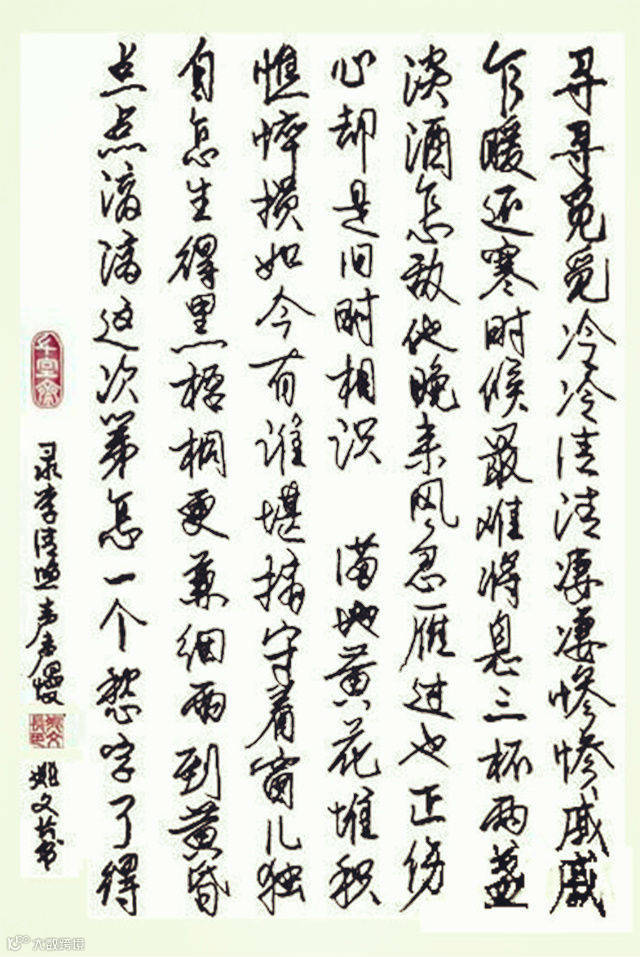 寻寻觅觅冷冷清清凄凄惨惨戚戚
乍暖还寒时候最难将息三杯两盏
淡酒怎敌他晚来风急雁过也正伤
心却是旧时相识 满地黄花堆积
憔悴损如今有谁堪摘守着窗儿独
自怎生得黑梧桐更兼细雨到黄昏
点点滴滴这次第怎一个愁字了得
录李清照声声慢
大数跨境